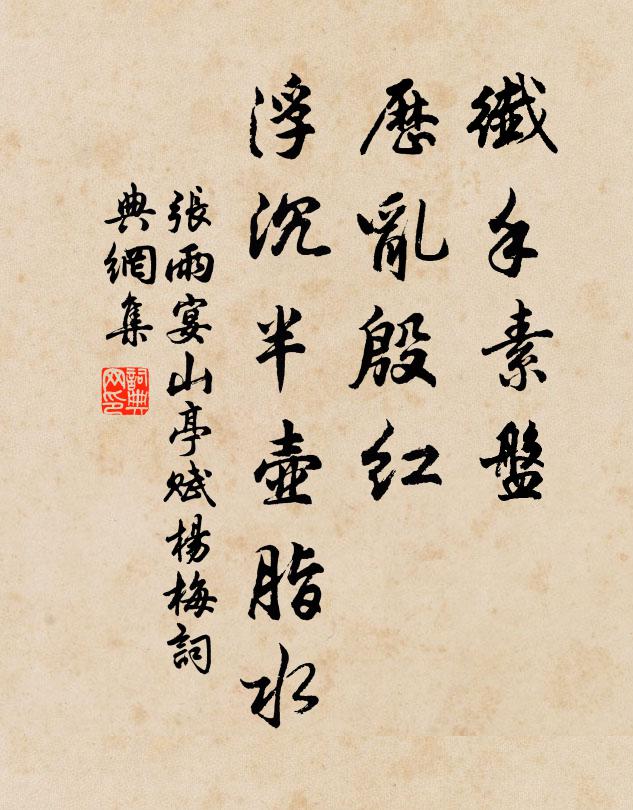 纖手素盤
歷亂殷紅
浮沉半壺脂水
張雨宴山亭賦楊梅詞
典網集
詞典網印